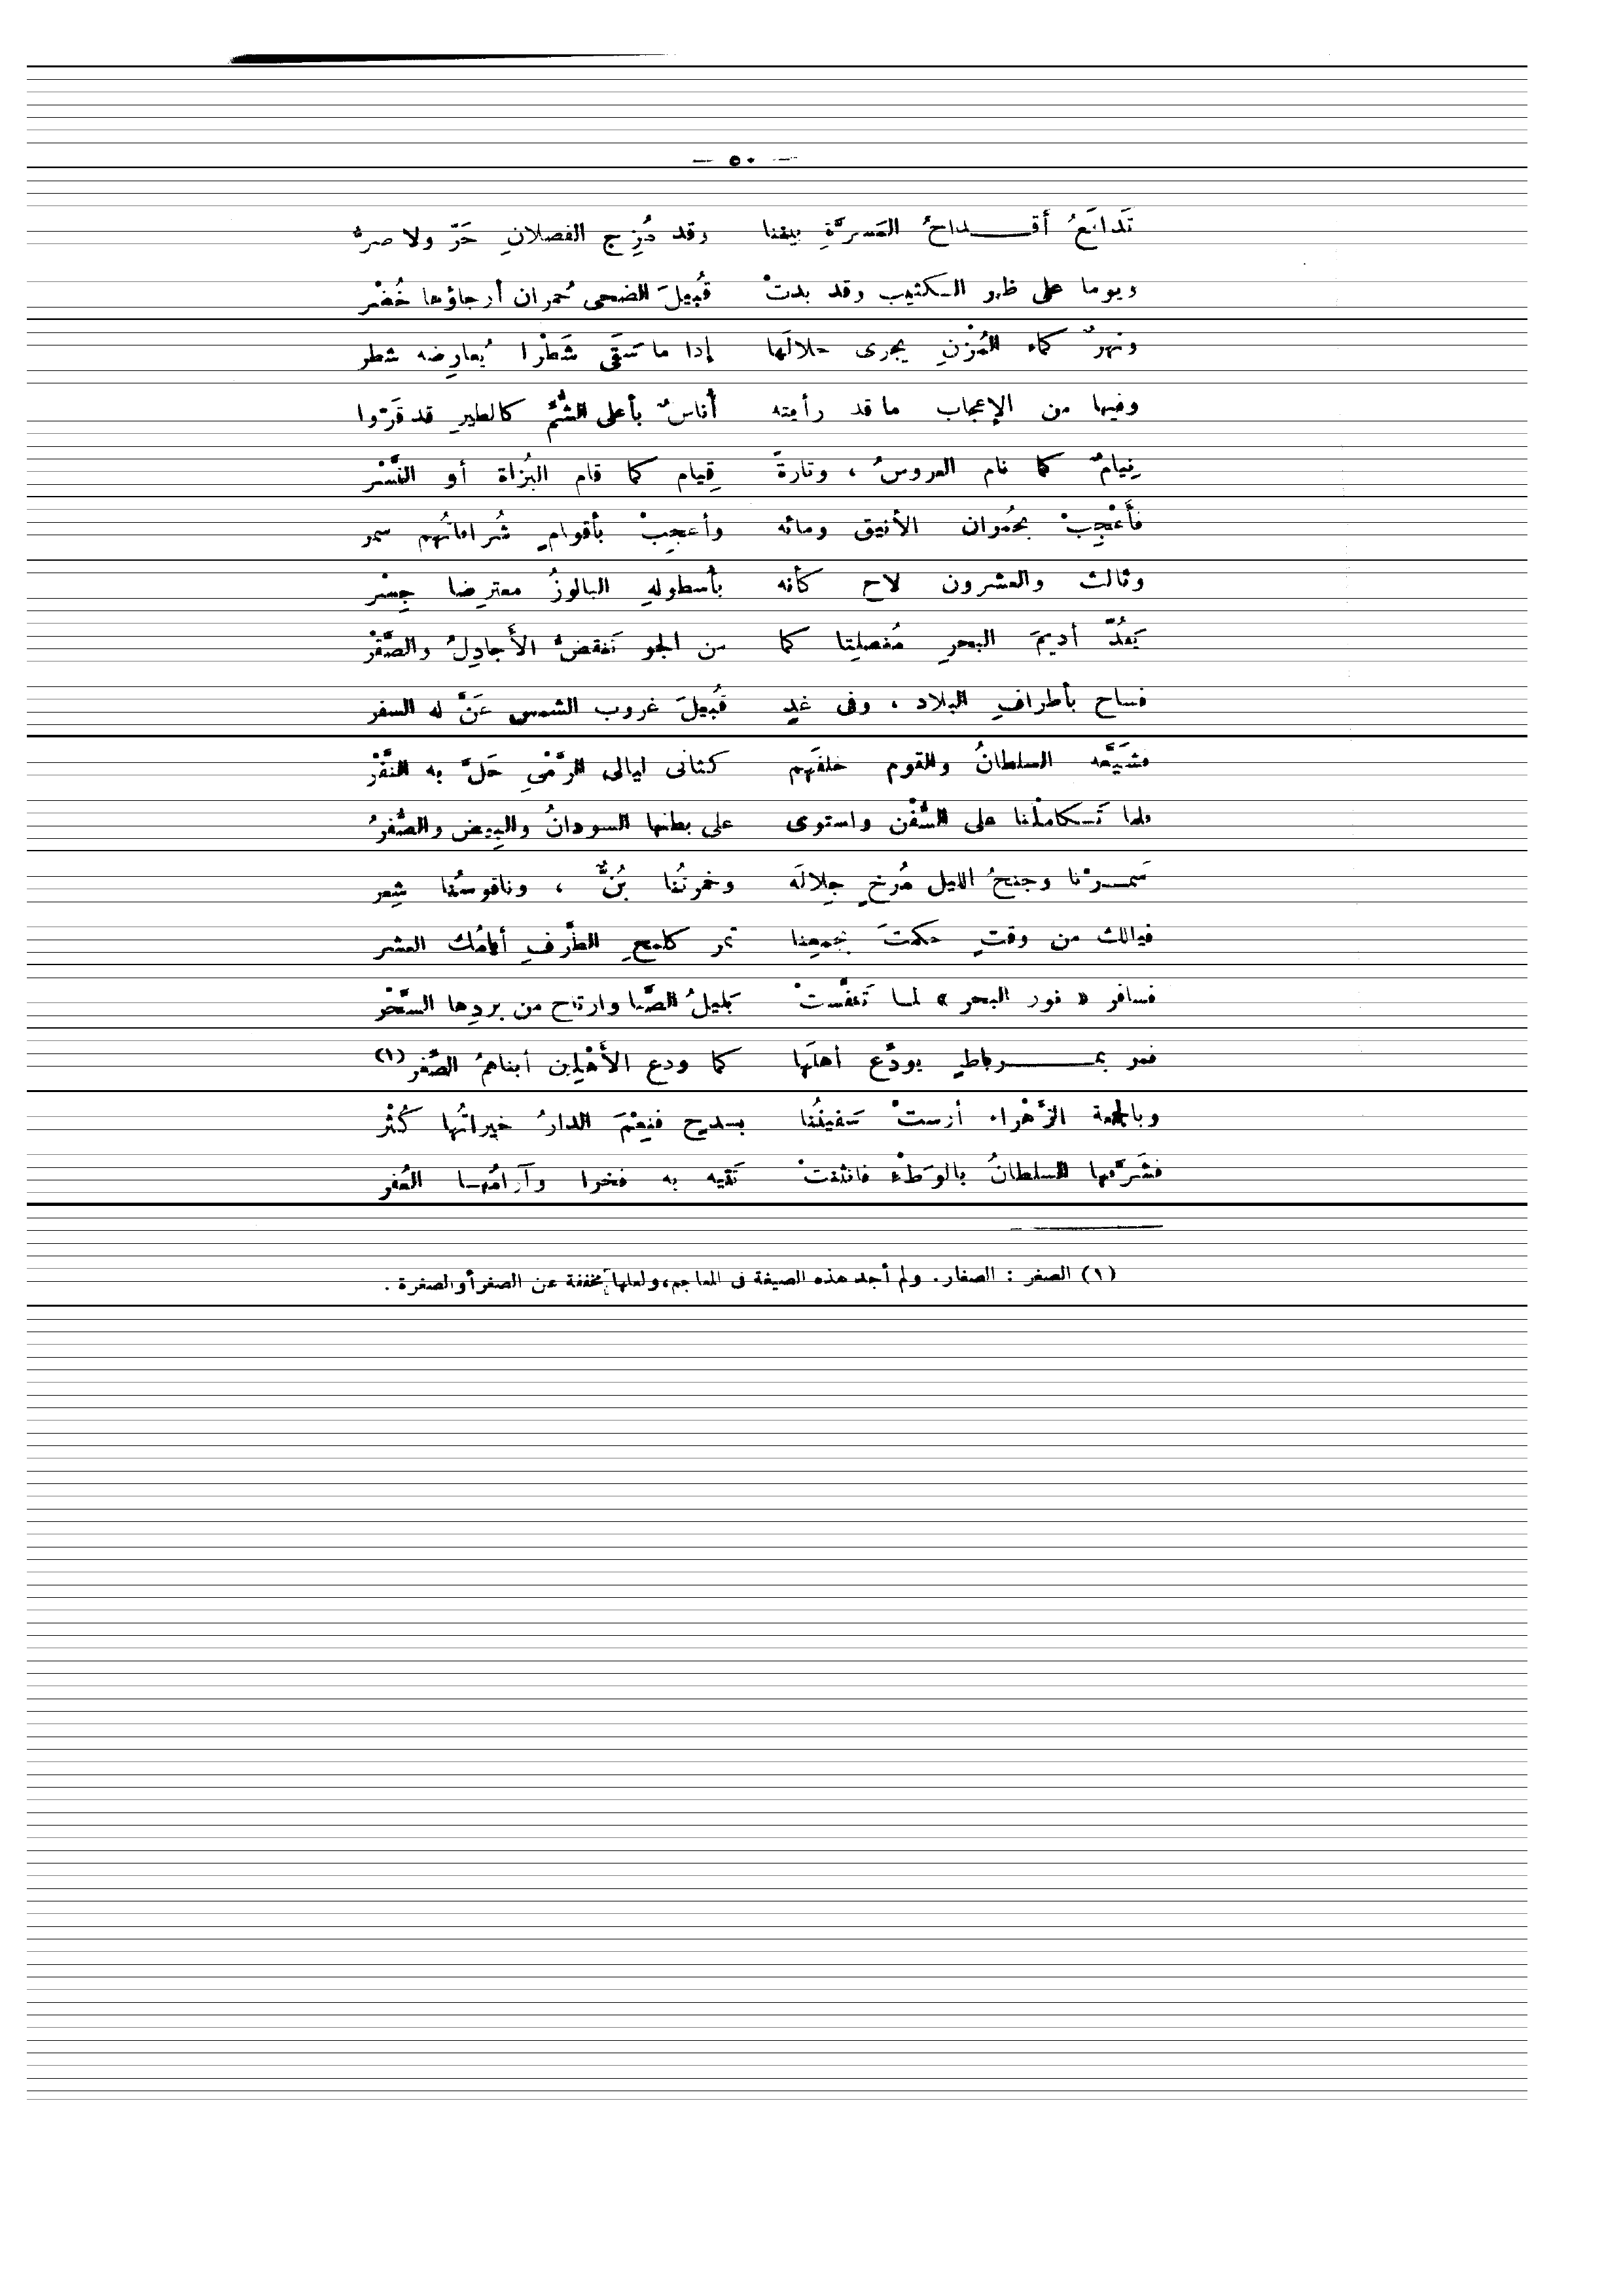 — ٥٠ —
تَدافَعُ أقـــداحُ المَسرَّةِ بيننا وقد مُزِج الفصلانِ حَرّ ولا صرُّ
ويوما على ظهر الـكثيب وقد بدتْ قُبيلَ الضحى حُمران أرجاؤها خُضْر
ونهرٌ كماء المُزْنِ يجرى خلالَها إذا ما سَقَى شَطْرا يُعارِضه شطر
وفيها من الإعجاب ما قد رأيته أناسٌ بأعلى الشُّمِّ كالطيرِ قد قَرّوا
نِيامٌ كما نام العروسُ ، وتارةً قِيام كما قام البُزاة أو النَّسْر
فأَعْجِبْ بحُمران الأنيق ومائه وأعجِبْ بأقوامٍ شُراماتُهم سمر
وثالث والعشرون لاح كأنه بأسطولهِ البالوزُ معترضا جِسْر
يَقُدُّ أديمَ البحرِ مُنصلِتا كما من الجو تَنقضُّ الأَجادِلُ والصَّقْر
فساح بأطرافِ البلاد ، وفى غدٍ قُبيلَ غروب الشمس عَنَّ له السفر
فشَيَّعه السلطانُ والقوم خلفَهم كثانى ليالى الرَّمْىِ حَلَّ به النَّفْر
فلما تَـكاملْنا على السُّفْن واستوى على بطنها السودانُ والبِيض والصُّفرُ
سَمـرْنا وجنحُ الليل مُرخٍ جِلالَه وخمرتُنا بُنٌّ ، وناقوسُنا شِعر
فيالك من وقتٍ حكمتَ بجمعِنا تمر كلمحِ الطَّرفِ أيامُك العشر
فسافر « نور البحر » لمـا تَنفَّستْ بَليلُ الصَّبا وارتاح من بردِها السَّحْر
فمر بمـــرباطٍ يودِّع أهلَها كما ودع الأَهْلِين أبناهمُ الصُّغر(١)
وبالجمعة الزَّهْراء أرستْ سَفينُنا بسدح فنِعْمَ الدارُ خيراتُها كُثْر
فشَرَّفها السلطانُ بالوَطْءِ فانثنتْ تَتيه به فخرا وآرامُهـا العُفر
(١) الصغر : الصغار. ولم أجد هذه الصيغة فى المعاجم، ولعلها مخففة عن الصغر أو الصغرة .